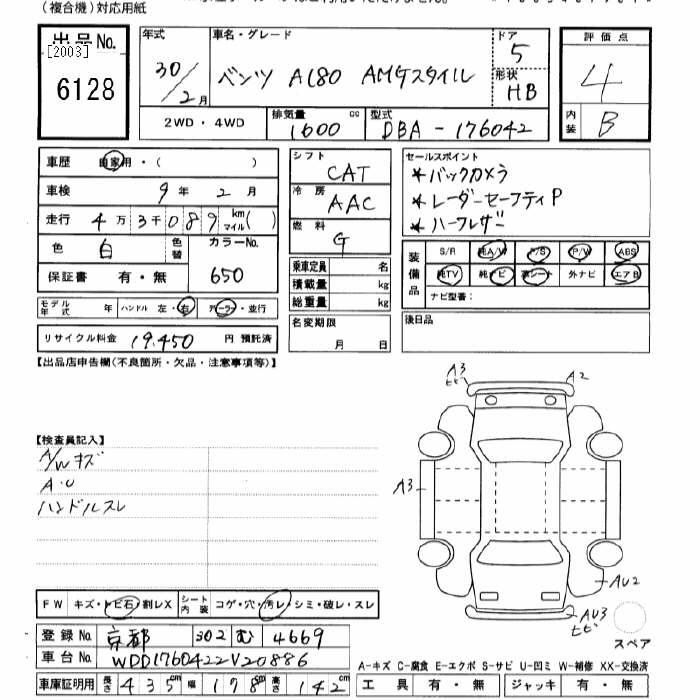 (複合機)対応用紙
出品No. [2003] 6128
年式 30/2月
車名・グレード ベンツ A180 AMGスタイル
ドア 5
形状 HB
評価点 4
内装 B
2WD・4WD
排気量 1600 cc
型式 DBA-176042
車歴 自家用・( )
車検 9年 2月
走行 4万3千089 km マイル( )
色 白 色替
カラーNo. 650
保証書 有・無
モデル年式 年 ハンドル 左・右 ディーラー・並行
リサイクル料金 19,450 円 預託済
シフト CAT
冷房 AAC
燃料 G
乗車定員 名
積載量 kg
総重量 kg
名変期限 月 日
セールスポイント
*バックカメラ
*レーダーセーフティP
*ハーフレザー
装備品 S/R 純A/W P/S P/W ABS
純TV 純ナビ 革シート 外ナビ エアB
ナビ型番:
後日品
【出品店申告欄(不良箇所・欠品・注意事項等)】
A3 ヒビ
A2
【検査員記入】
A/Wキズ
A・U
ハンドルスレ
A3
AU2
AU3 ヒビ
スペア
FW キズ・トビ石・割レX シート内装 コゲ・穴・汚レ・シミ・破レ・スレ
登録No. 京都 302 む 4669
車台No. WDD1760422V20886
車庫証明用 長さ 435cm 幅 178cm 高さ 142cm
A-キズ C-腐食 E-エクボ S-サビ U-凹ミ W-補修 XX-交換済
工具 有・無 ジャッキ 有・無